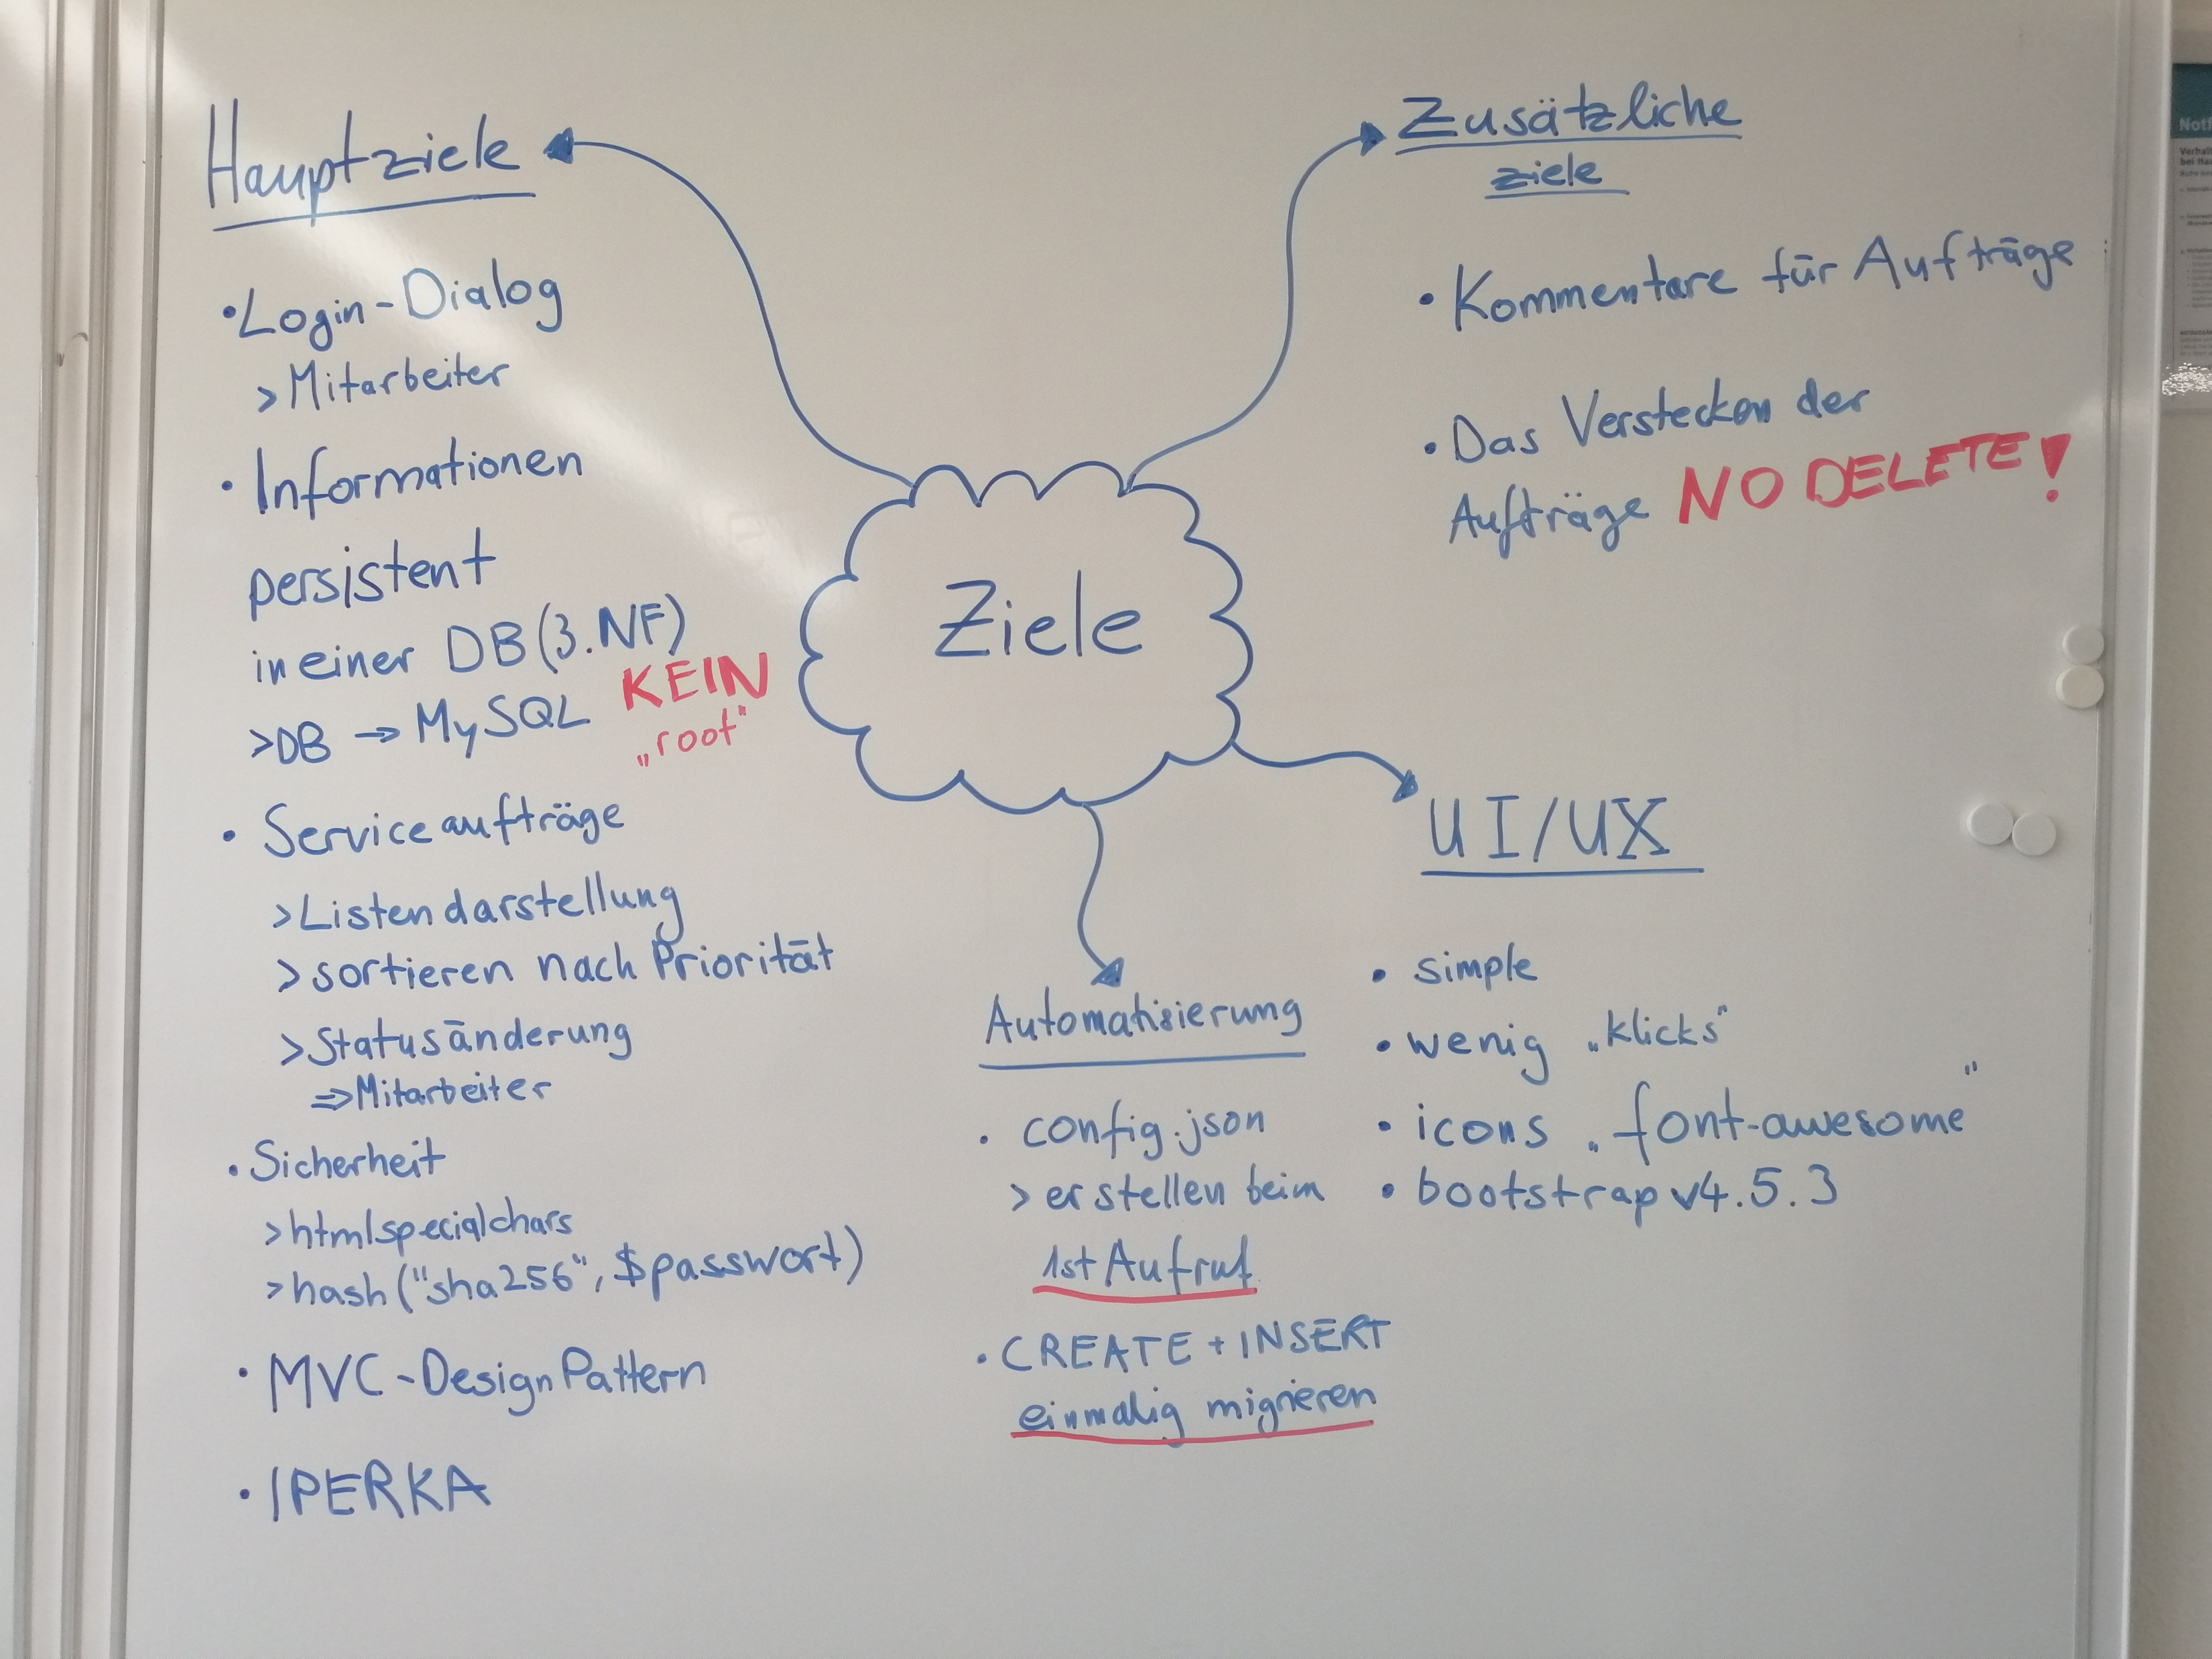 Hauptziele
• Login-Dialog
> Mitarbeiter
• Informationen
persistent
in einer DB (3.NF)
> DB → MySQL KEIN
„root"
• Serviceaufträge
> Listendarstellung
> sortieren nach Priorität
> Statusänderung
⇒ Mitarbeiter
• Sicherheit
> htmlspecialchars
> hash("sha256", $passwort)
• MVC-Design Pattern
• IPERKA
Ziele
Zusätzliche
ziele
• Kommentare für Aufträge
• Das Verstecken der
Aufträge NO DELETE!
Automatisierung
• config.json
> erstellen beim
1st Aufruf
• CREATE + INSERT
einmalig migrieren
UI/UX
• simple
• wenig „klicks"
• icons „font-awesome"
• bootstrap v4.5.3
Notf
Verhalt
bei Ha